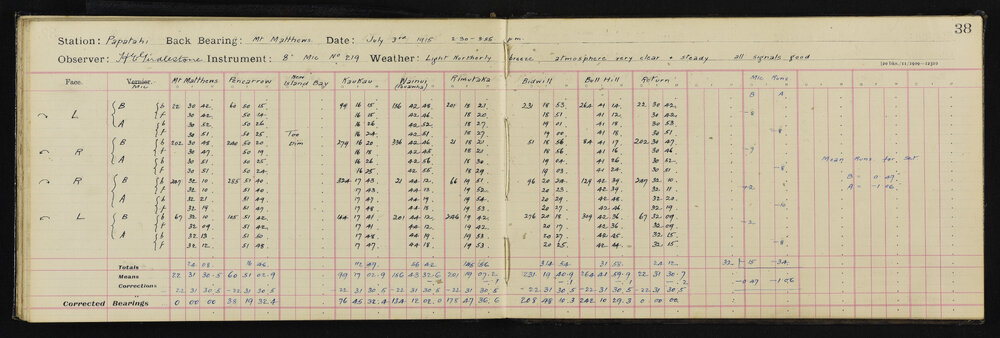 38
Station: Papatahi Back Bearing: Mt Matthews Date: July 3rd 1915 2.30 - 3.55 p.m.
Observer: H V Girdlestone Instrument: 8" Mic No 219 Weather: Light Northerly breeze, atmosphere very clear + steady all signals good
[20 bks./11/1909—12310
Face. Vernier. Mic Mt Matthews Pencarrow New Island Bay Kaukau Wainui (Towanha) Rimutaka Bidwill Bull Hill Return Mic Runs
B A
L B b 22 30 42 60 50 15 99 16 15 156 42 48 201 18 21 231 18 53 264 41 14 22 30 42
f 30 42 50 14 16 15 42 46 18 20 18 51 41 12 30 42 -8
A b 30 52 50 26 16 26 42 52 18 27 19 01 41 18 30 53
f 30 51 50 25 Too 16 24 42 51 18 27 19 00 41 18 30 51 -8
R B b 202 30 48 240 50 20 Dim 279 16 20 336 42 46 21 18 21 51 18 56 84 41 17 202 30 47
f 30 47 50 19 16 18 42 45 18 21 18 56 41 16 30 46 -9
A b 30 51 50 25 16 26 42 56 18 30 19 04 41 26 30 52 Mean Runs for Set
f 30 51 50 24 16 25 42 55 18 29 19 03 41 24 30 51 -8
R B b 247 32 10 285 51 40 324 17 43 21 44 12 66 19 51 96 20 24 129 42 39 247 32 10 B = 0.47
f 32 10 51 40 17 43 44 13 19 52 20 23 42 39 32 11 +2 A = -1.06
A b 32 21 51 49 17 49 44 19 19 54 20 29 42 48 32 20
f 32 19 51 49 17 48 44 18 19 53 20 27 42 46 32 19 -10
L B b 67 32 10 105 51 42 144 17 41 201 44 12 246 19 42 276 20 18 309 42 36 67 32 09
f 32 09 51 42 17 41 44 12 19 42 20 17 42 36 32 09 -2
A b 32 13 51 50 17 48 44 19 19 53 20 27 42 45 32 15
f 32 12 51 48 17 47 44 18 19 53 20 25 42 44 32 15 -8
Totals 24 08 16 46 112 49 56 42 146 56 314 54 31 58 24 12 32 -15 -34
Means 22 31 30.5 60 51 02.9 99 17 02.9 156 43 32.6 201 19 07.2 231 19 40.9 264 41 59.9 22 31 30.7 -0.47 -1.06
Corrections -.1 -.1 -.1 -.2
-22 31 30.5 -22 31 30.5 -22 31 30.5 -22 31 30.5 -22 31 30.5 -22 31 30.5 -22 31 30.5 22 31 30.5
Corrected Bearings 0 00 00 38 19 32.4 76 45 32.4 134 12 02.0 178 47 36.6 208 48 10.3 242 10 29.3 0 00 00